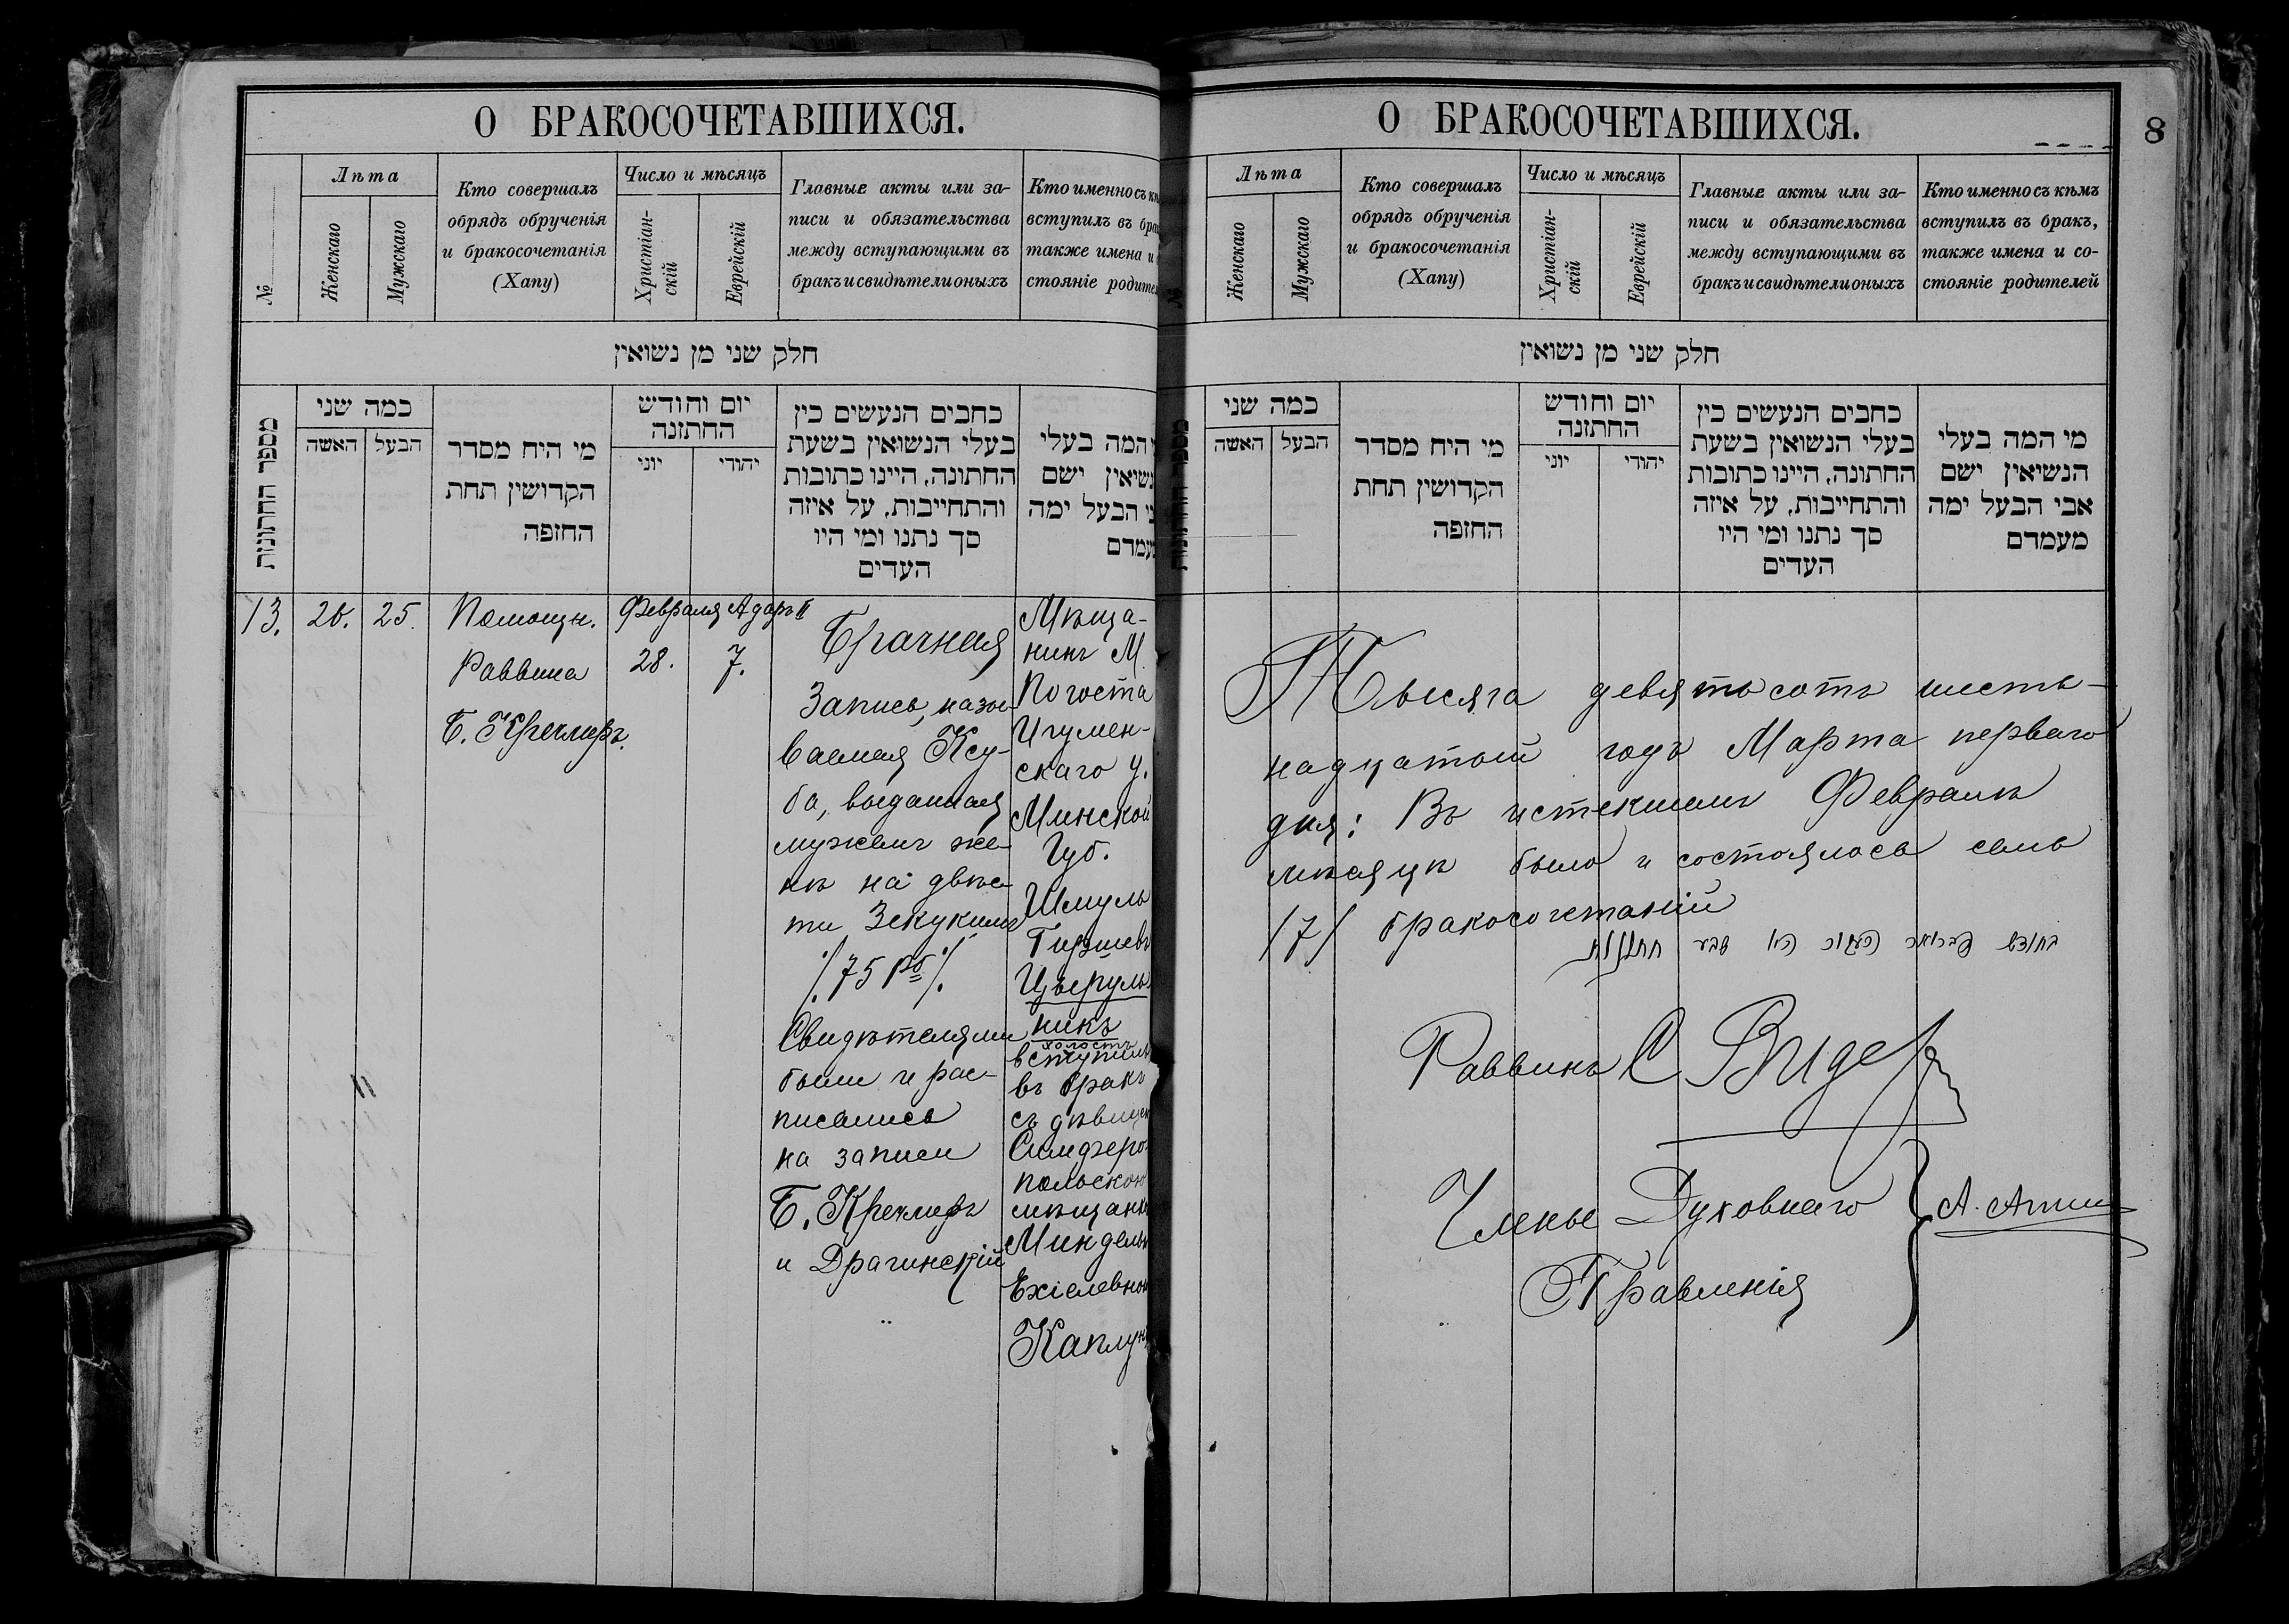 О БРАКОСОЧЕТАВШИХСЯ.
№
Лѣта
Женскаго
Мужскаго
Кто совершалъ
обрядъ обрученія
и бракосочетанія
(Хапу)
Число и мѣсяцъ
Христіан-
скій
Еврейскій
Главные акты или за-
писи и обязательства
между вступающими въ
бракъ и свидѣтели оныхъ
Кто именно съ
вступилъ въ
также имена и
стояніе
חלק שני מן נשואין
מספר החתונות
כמה שני
האשה
הבעל
מי היח מסדר
הקדושין תחת
החזפה
יום וחודש
החתזנה
יוני
יהודי
כחבים הנעשים כין
בעלי הנשואין בשעת
החתונה, היינו כתובות
והתחייבות, על איזה
סך נתנו ומי היו
העדים
המה בעלי
ישם
הבעל ימה
13.
20.
25.
Помощн.
Раввина
Б. Кречмеръ.
Февраля
28.
Адаръ II
7.
Брачная
Запись, назы-
ваемая Ксу-
ба, выданная
мужемъ же-
нѣ на двѣс-
ти Зекукимъ
/. 75 рб /.
Свидѣтелями
были и рас-
писались
на записи
Б. Кречмеръ
и Драгинскій
Мѣща-
нинъ М.
Погоста
Игумен-
скаго у.
Минской
Губ.
Шмуль
Гиршевъ
Цверуль
никъ
холостъ
вступилъ
въ бракъ
съ
Симферо-
польскою
Миндель
Ехіелевною
О БРАКОСОЧЕТАВШИХСЯ.
8
№
Лѣта
Женскаго
Мужскаго
Кто совершалъ
обрядъ обрученія
и бракосочетанія
(Хапу)
Число и мѣсяцъ
Христіан-
скій
Еврейскій
Главные акты или за-
писи и обязательства
между вступающими въ
бракъ и свидѣтели оныхъ
Кто именно съ кѣмъ
вступилъ въ бракъ,
также имена и со-
стояніе родителей
חלק שני מן נשואין
כמה שני
האשה
הבעל
מי היח מסדר
הקדושין תחת
החזפה
יום וחודש
החתזנה
יוני
יהודי
כחבים הנעשים כין
בעלי הנשואין בשעת
החתונה, היינו כתובות
והתחייבות, על איזה
סך נתנו ומי היו
העדים
מי המה בעלי
הנשיאין ישם
אבי הבעל ימה
מעמדם
Тысяча девятьсотъ шест-
надцатый годъ Марта перваго
дня: Въ истекшемъ Февралѣ
мѣсяцѣ было и состоялось семь
/7/ бракосочетаній
בחודש פברואר העבר היו שבע חתונות
Раввинъ С Видер
Члены Духовнаго
Правленія